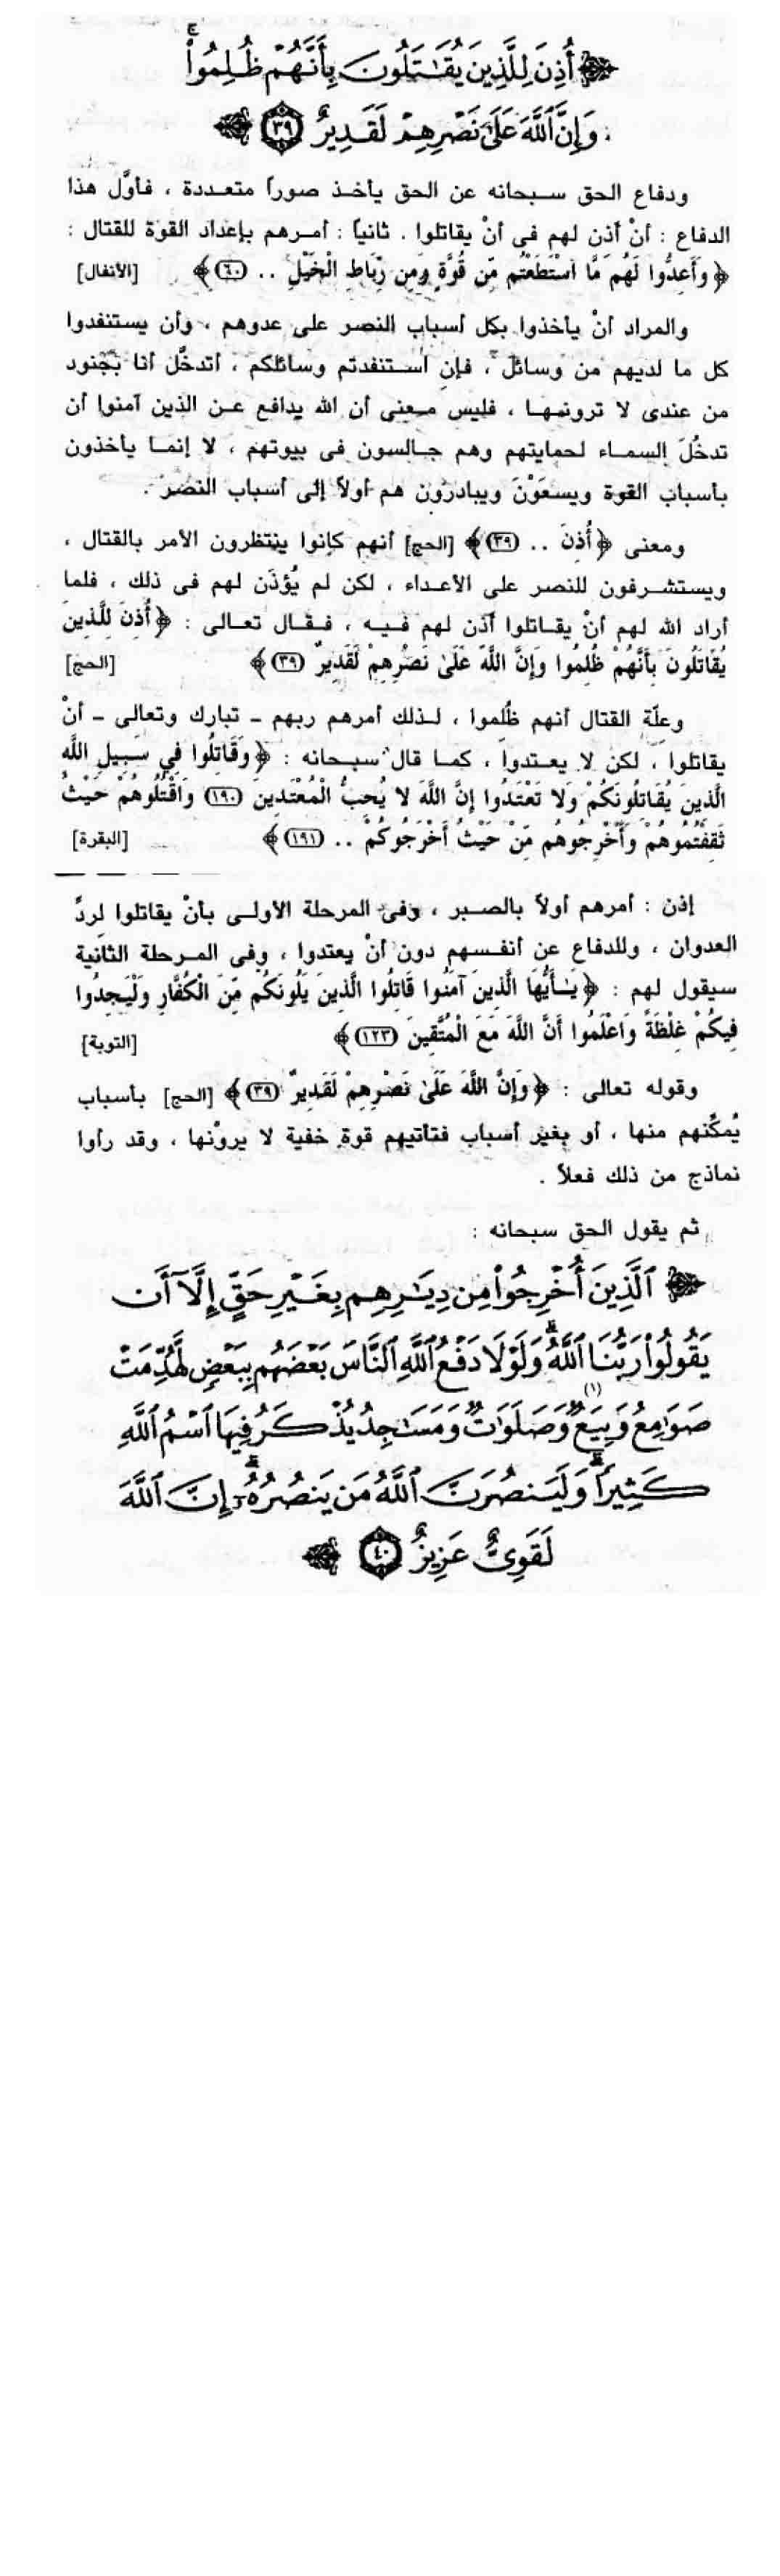 أُذِنَ لِلَّذِينَ يُقَٰتَلُونَ بِأَنَّهُمْ ظُلِمُوا۟ ۚ
وَإِنَّ ٱللَّهَ عَلَىٰ نَصْرِهِمْ لَقَدِيرٌ ﴿٣٩﴾
ودفاع الحق سبحانه عن الحق يأخذ صوراً متعددة ، فأوَّل هذا
الدفاع : أنْ أذن لهم فى أنْ يقاتلوا . ثانياً : أمرهم بإعداد القوة للقتال :
﴿ وَأَعِدُّوا لَهُم مَّا اسْتَطَعْتُم مِّن قُوَّةٍ وَمِن رِّبَاطِ الْخَيْلِ .. (٦٠) ﴾ [الأنفال]
والمراد أنْ يأخذوا بكل أسباب النصر على عدوهم ، وأن يستنفدوا
كل ما لديهم من وسائل ، فإن استنفدتم وسائلكم ، أتدخَّل أنا بجنود
من عندى لا ترونها ، فليس معنى أن الله يدافع عن الذين آمنوا أن
تدخُّلَ السماء لحمايتهم وهم جالسون فى بيوتهم ، لا إنما يأخذون
بأسباب القوة ويسعَوْنَ ويبادرون هم أولاً إلى أسباب النصر .
ومعنى ﴿ أُذِنَ .. (٣٩) ﴾ [الحج] أنهم كانوا ينتظرون الأمر بالقتال ،
ويستشرفون للنصر على الأعداء ، لكن لم يُؤذَن لهم فى ذلك ، فلما
أراد الله لهم أنْ يقاتلوا أذن لهم فيه ، فقال تعالى : ﴿ أُذِنَ لِلَّذِينَ
يُقَاتَلُونَ بِأَنَّهُمْ ظُلِمُوا وَإِنَّ اللَّهَ عَلَىٰ نَصْرِهِمْ لَقَدِيرٌ (٣٩) ﴾ [الحج]
وعلّة القتال أنهم ظُلموا ، لذلك أمرهم ربهم - تبارك وتعالى - أنْ
يقاتلوا ، لكن لا يعتدوا ، كما قال سبحانه : ﴿ وَقَاتِلُوا فِي سَبِيلِ اللَّهِ
الَّذِينَ يُقَاتِلُونَكُمْ وَلَا تَعْتَدُوا إِنَّ اللَّهَ لَا يُحِبُّ الْمُعْتَدِين (١٩٠) وَاقْتُلُوهُمْ حَيْثُ
ثَقِفْتُمُوهُمْ وَأَخْرِجُوهُم مِّنْ حَيْثُ أَخْرَجُوكُمْ .. (١٩١) ﴾ [البقرة]
إذن : أمرهم أولاً بالصبر ، وفى المرحلة الأولى بأنْ يقاتلوا لردِّ
العدوان ، وللدفاع عن أنفسهم دون أنْ يعتدوا ، وفى المرحلة الثانية
سيقول لهم : ﴿ يَٰأَيُّهَا الَّذِينَ آمَنُوا قَاتِلُوا الَّذِينَ يَلُونَكُم مِّنَ الْكُفَّارِ وَلْيَجِدُوا
فِيكُمْ غِلْظَةً وَاعْلَمُوا أَنَّ اللَّهَ مَعَ الْمُتَّقِينَ (١٢٣) ﴾ [التوبة]
وقوله تعالى : ﴿ وَإِنَّ اللَّهَ عَلَىٰ نَصْرِهِمْ لَقَدِيرٌ (٣٩) ﴾ [الحج] بأسباب
يُمكِّنهم منها ، أو بغير أسباب فتأتيهم قوة خفية لا يروْنها ، وقد رأوا
نماذج من ذلك فعلاً .
ثم يقول الحق سبحانه :
ٱلَّذِينَ أُخْرِجُوا۟ مِن دِيَٰرِهِم بِغَيْرِ حَقٍّ إِلَّآ أَن
يَقُولُوا۟ رَبُّنَا ٱللَّهُ ۗ وَلَوْلَا دَفْعُ ٱللَّهِ ٱلنَّاسَ بَعْضَهُم بِبَعْضٍ لَّهُدِّمَتْ
صَوَٰمِعُ وَبِيَعٌ (١) وَصَلَوَٰتٌ وَمَسَٰجِدُ يُذْكَرُ فِيهَا ٱسْمُ ٱللَّهِ
كَثِيرًا ۗ وَلَيَنصُرَنَّ ٱللَّهُ مَن يَنصُرُهُۥٓ ۗ إِنَّ ٱللَّهَ
لَقَوِىٌّ عَزِيزٌ ﴿٤٠﴾